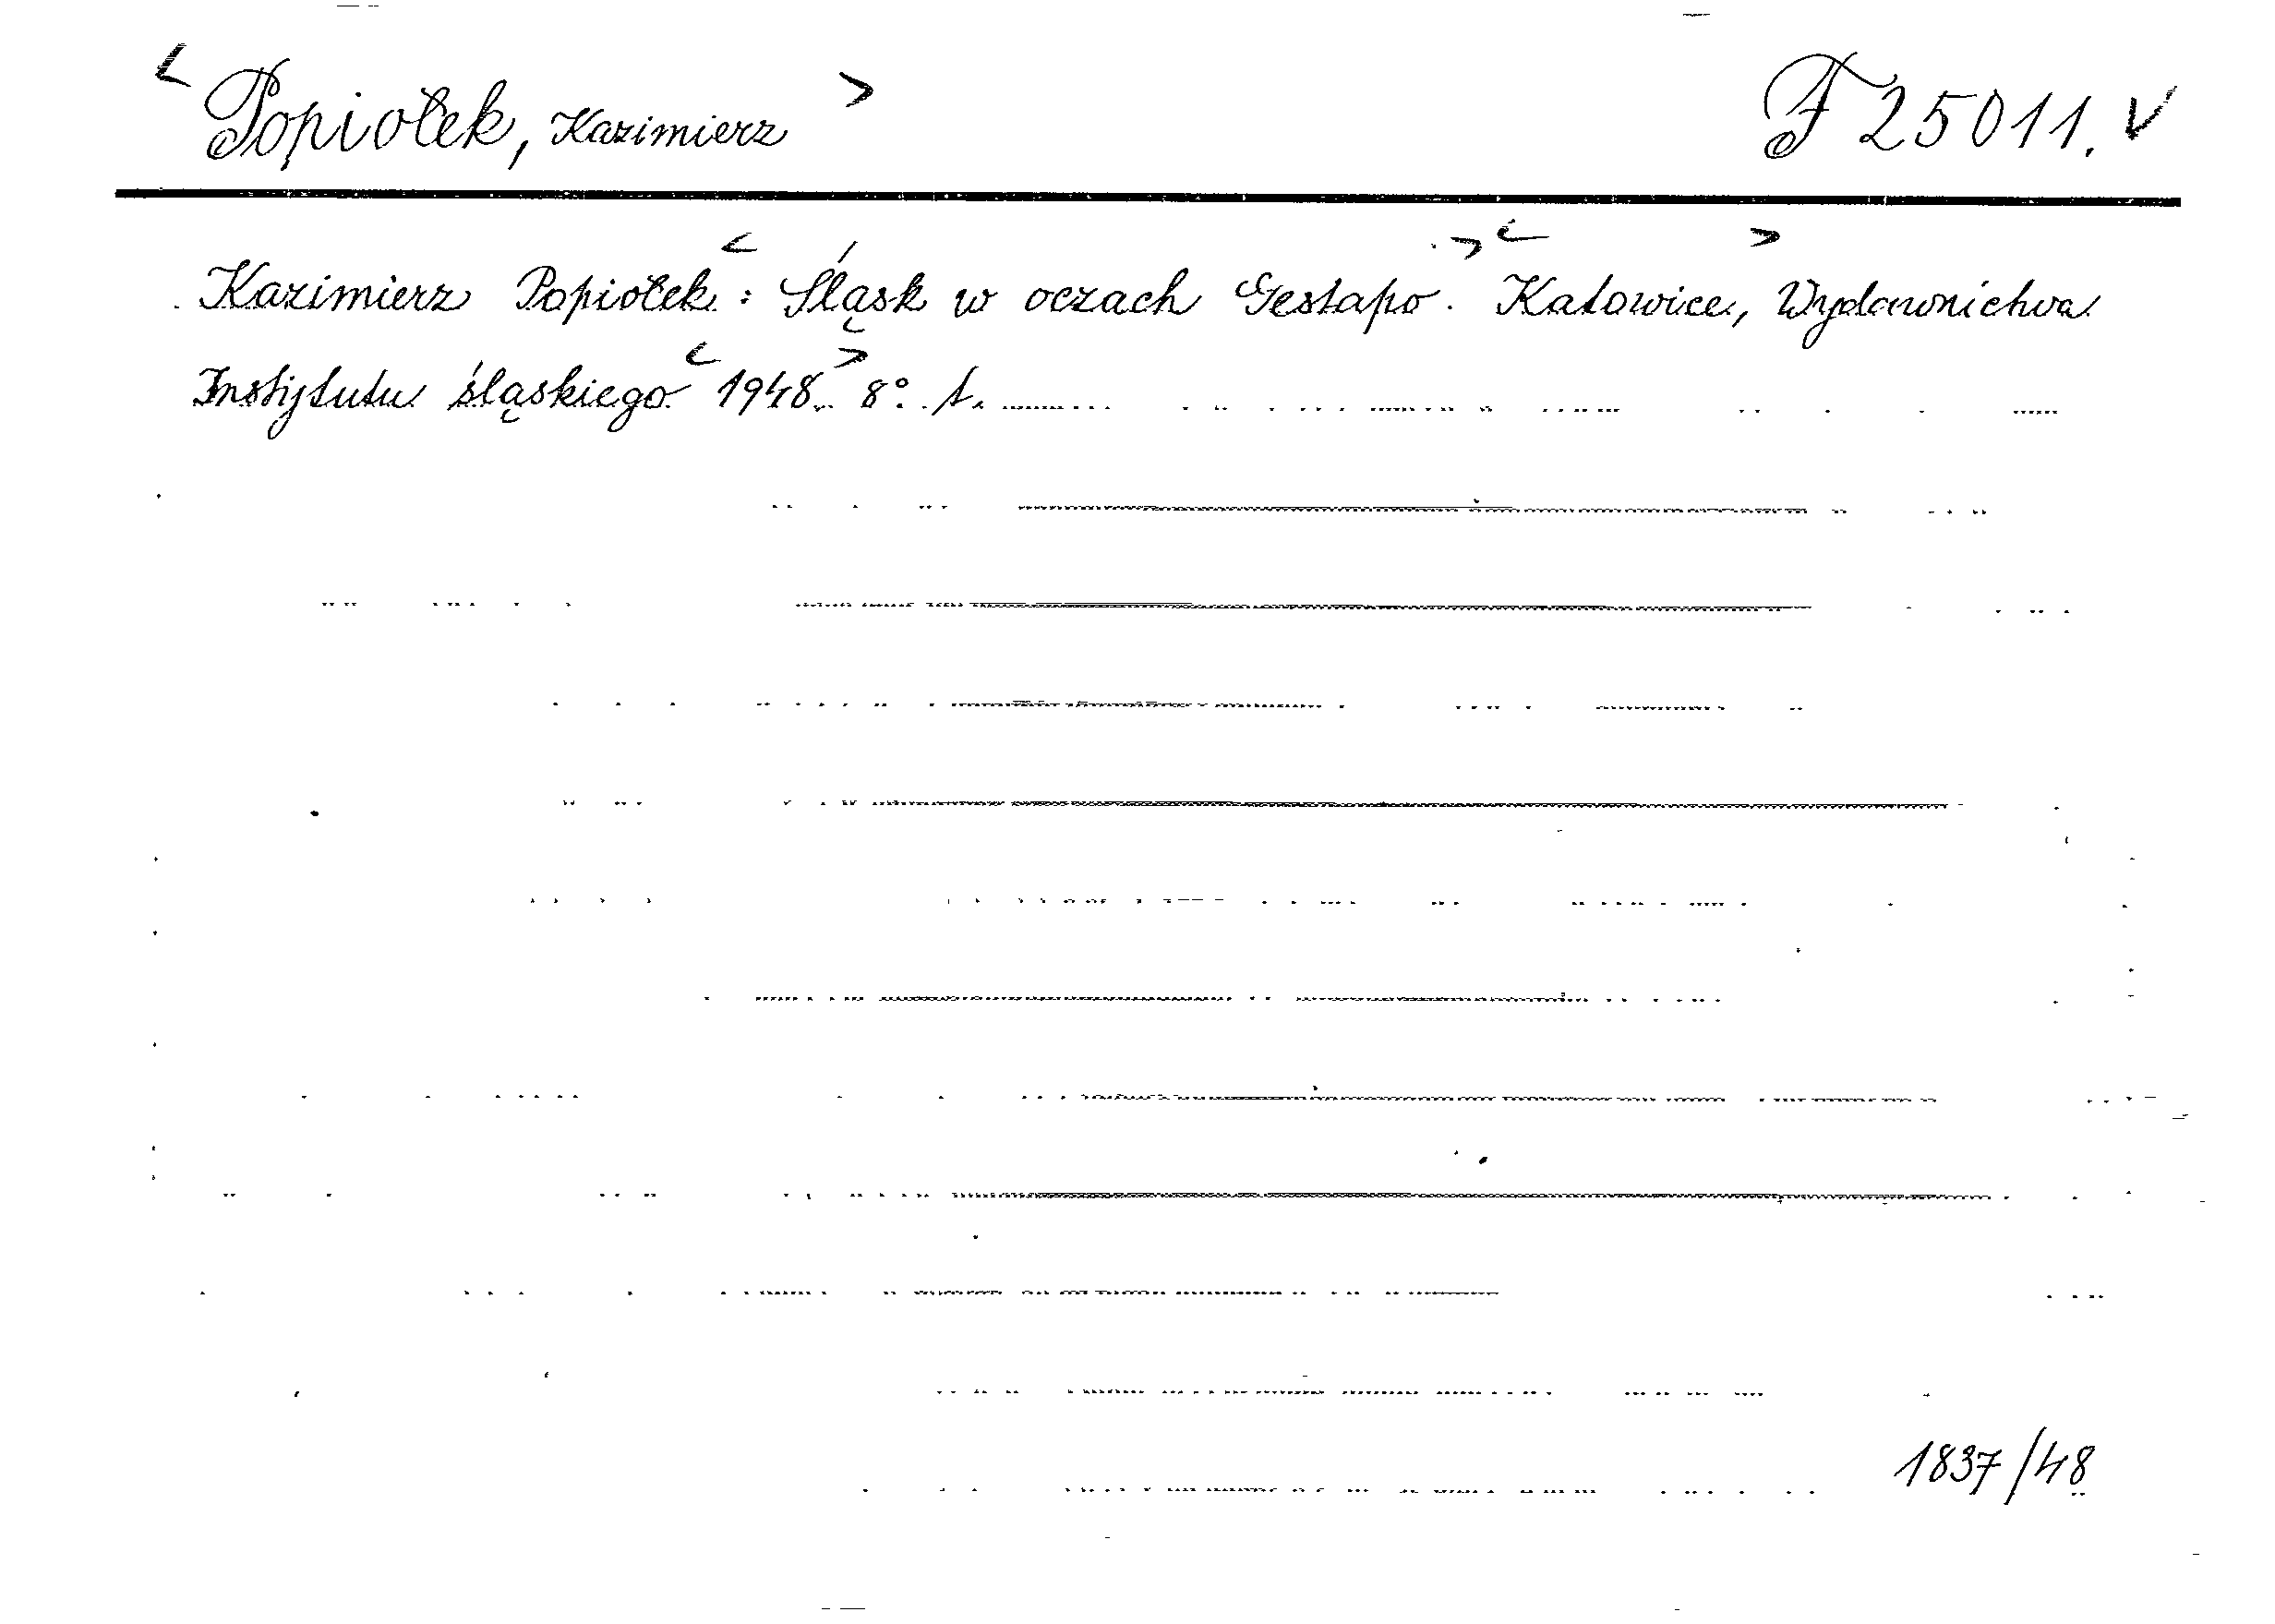 < Popiołek, Kazimierz > F 25011. V
Kazimierz Popiołek: < Śląsk w oczach Gestapo. > < Katowice, > Wydawnictwa
Instytutu śląskiego < 1948. > 8°. 1.
1837/48